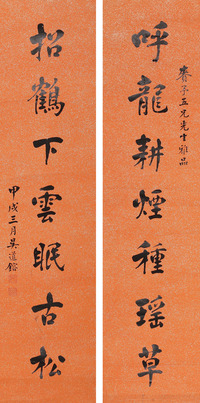 五兄先生雅品
呼龍耕煙種瑶草
招鶴下雲眠古松
甲戌三月吳道鎔